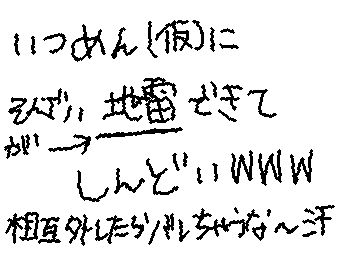 いつめん(仮)に
そんざい地雷できて
がい→
しんどいwww
相互外したらバレちゃうな〜汗